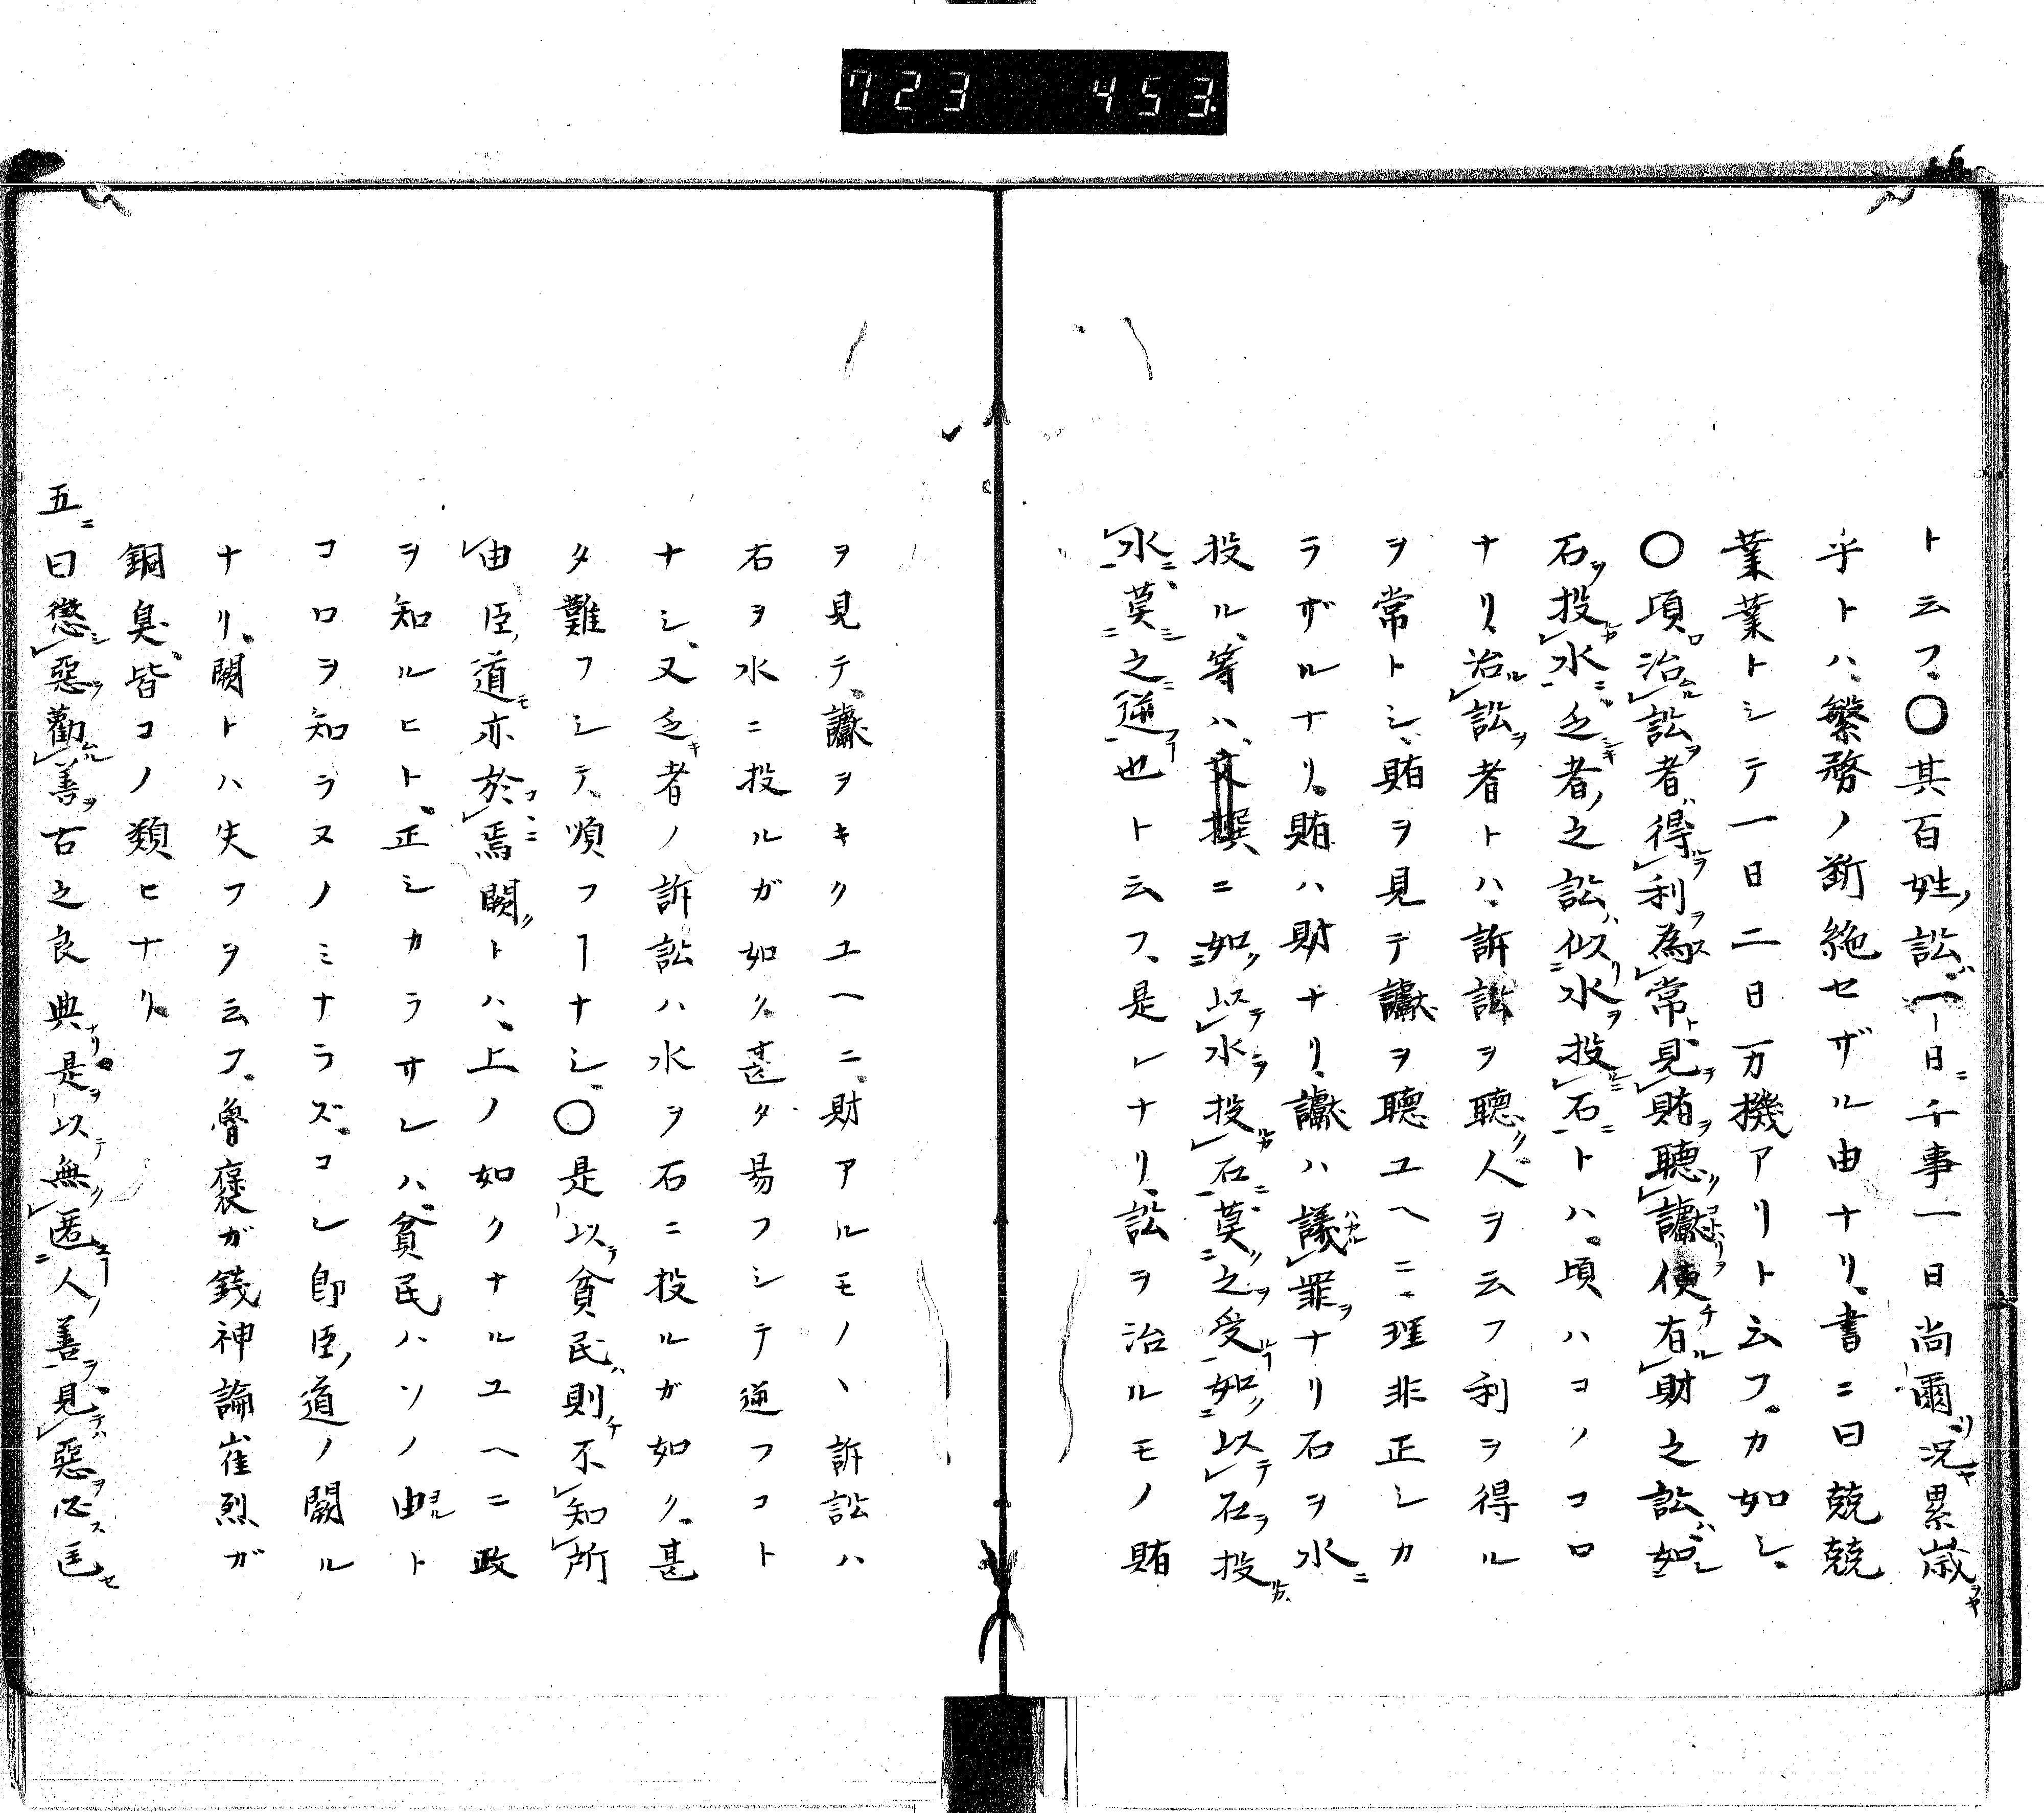 723 453
トニフ、〇其百姓ノ訟ハ一日ニ千事一日尚爾リ況ヤ累歳ヲヤ
乎トハ、繁務ノ断絶セザル由ナリ、書ニ曰兢兢
業業トシテ一日二日万機アリト云フ、カ如シ、
〇頃ロ治ムル訟ヲ者ハ得ルヲ利ヲ為ス常ト見テ賄ヲ聴ク讞コトハリヲ使チ有ル財之訟ハ如シ
石ヲ投ルカ水ニ乏シキ者ノ之訟ハ似リ水ヲ投ルニ石ニトハ、頃ハコノコロ
ナリ、治ル訟ヲ者トハ、訴訟ヲ聴ク人ヲ云フ利ヲ得ル
ヲ常トシ、賄ヲ見テ讞ヲ聴ユヘニ、理非正シカ
ラザルナリ、賄ハ財ナリ、讞ハ議ハカル罪ヲナリ石ヲ水ニ
投ル、等ハ、文撰ニ如ク以テ水ヲ投ルカ石ニ莫シ之ヲ受ルコト如ク以テ石ヲ投ルカ
水ニ莫シ之ニ逆フコト也ト云フ、是レナリ、訟ヲ治ルモノ賄
ヲ見テ、讞ヲキクユヘニ、財アルモノヽ訴訟ハ
石ヲ水ニ投ルガ如ク、甚タ易フシテ逆フコト
ナシ、又乏キ者ノ訴訟ハ水ヲ石ニ投ルガ如ク、甚
タ難フシテ、順フコトナシ、〇是以テ貧民ハ則チ不知所
由臣ノ道モ亦於コヽニ焉闕クトハ、上ノ如クナルユヘニ政
ヲ知ルヒト、正シカラサレハ、貧民ハソノ由ヨルト
コロヲ知ラヌノミナラズ、コレ即臣ノ道ノ闕ル
ナリ、闕トハ失フヲ云フ、魯褒ガ銭神論崔烈ガ
銅臭、皆コノ類ヒナリ、
五ニ曰懲シ悪ヲ勧ムル善ヲ古之良典ナリ是ヲ以テ無ク匿スコト人ノ善ヲ見テハ悪ヲ必ス匡セ